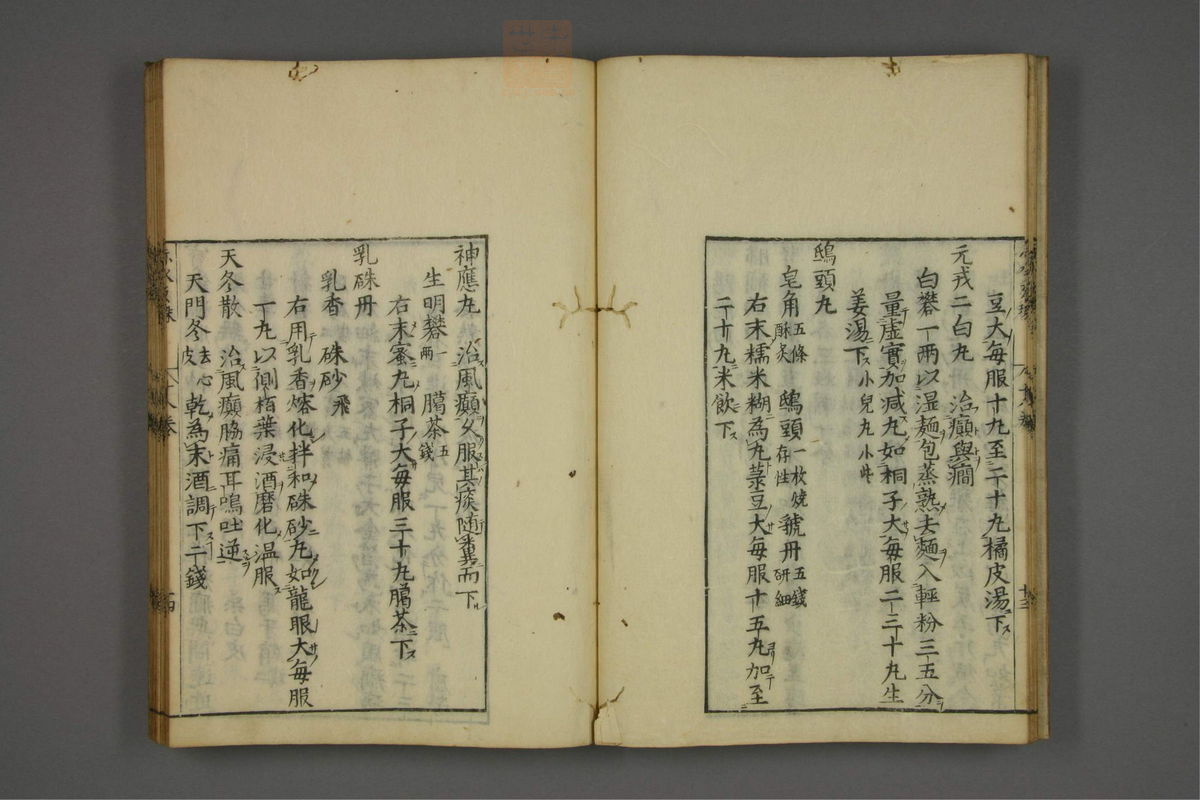 豆大每服十丸至二十丸橘皮湯下
元戎二白丸　治癲與癇
白礬一兩以湿麺包蒸熟去麺入輕粉三五分
量虛實加减丸如桐子大每服二三十丸生
姜湯下小兒丸小些
鴟頭丸
皂角五條酥炙　鴟頭一枚燒存性　虢丹五錢研細
右末糯米糊為丸菉豆大每服十五丸加至
二十丸米飲下
神應丸　治風癲久服其痰随糞而下
生明礬一兩　臈茶五錢
右末蜜丸桐子大每服三十丸臈茶下
乳硃丹
乳香　硃砂飛
右用乳香熔化拌和硃砂丸如龍眼大每服
一丸以側栢葉浸酒磨化温服
天冬散　治風癲脇痛耳鳴吐逆
天門冬去心皮　乾為末酒調下二錢